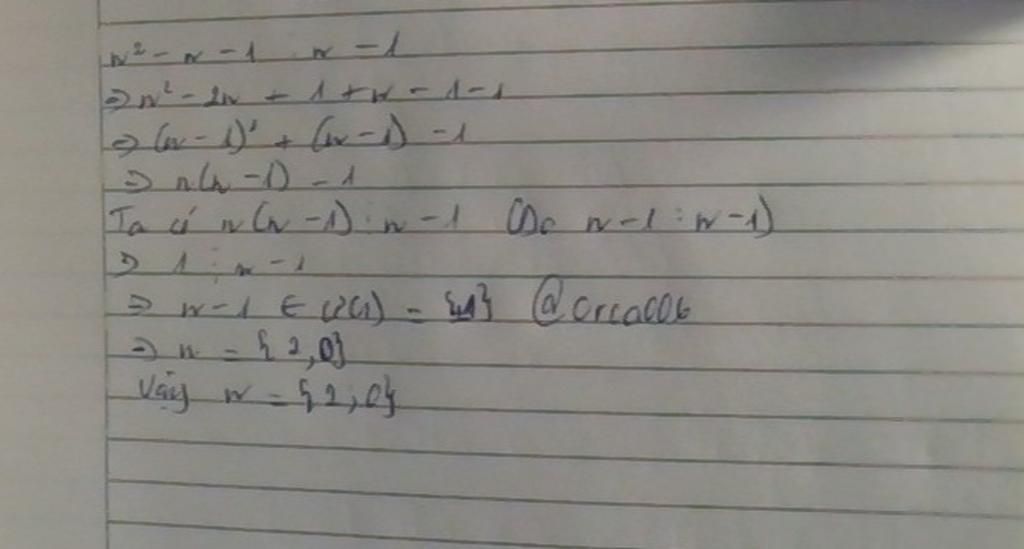 n² - n - 1 ⋮ n - 1
⇒ n² - 2n + 1 + n - 1 - 1
⇒ (n - 1)² + (n - 1) - 1
⇒ n(n - 1) - 1
Ta có n(n - 1) ⋮ n - 1 (Do n - 1 ⋮ n - 1)
⇒ 1 ⋮ n - 1
⇒ n - 1 ∈ Ư(1) = {±1} @Orca006
⇒ n = {2, 0}
Vậy n = {2; 0}